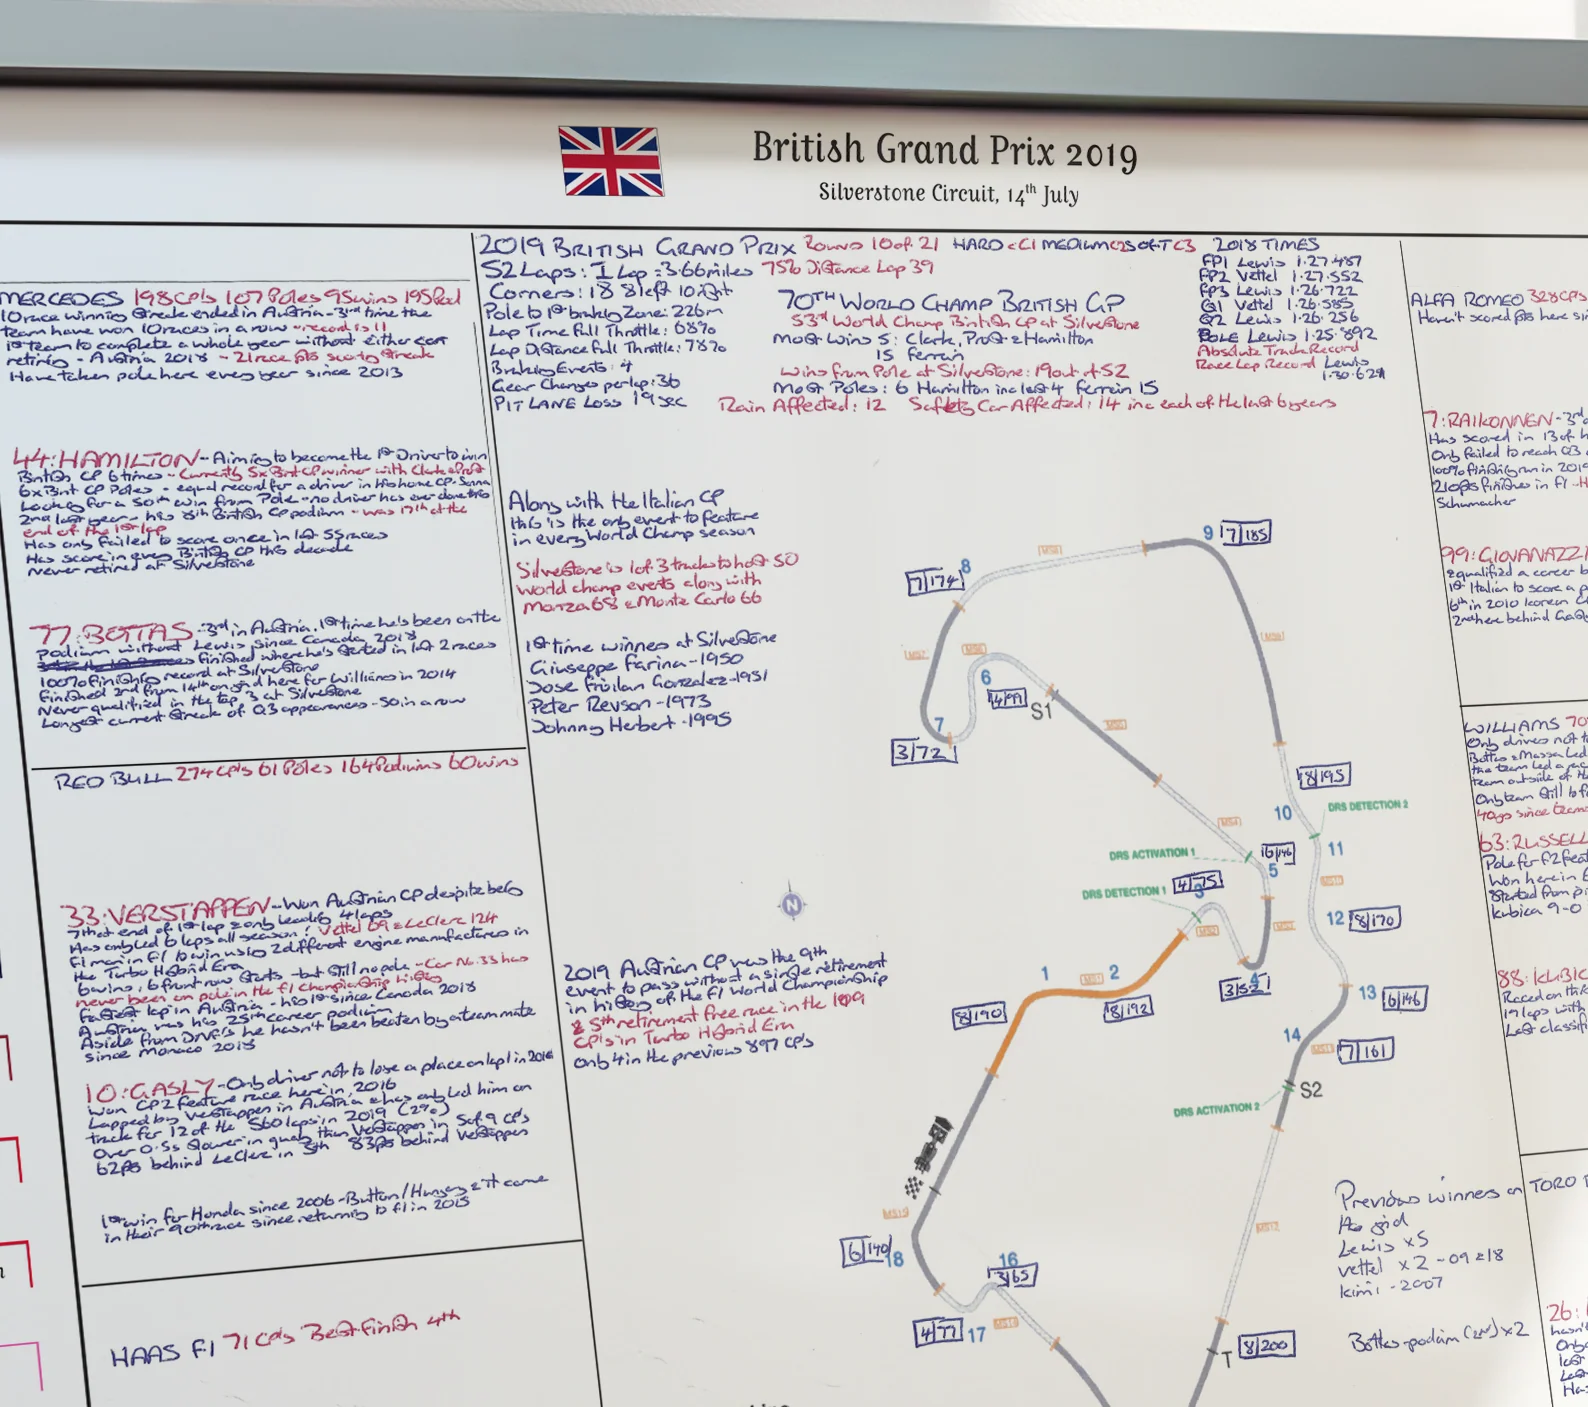 British Grand Prix 2019
Silverstone Circuit, 14th July
MERCEDES 198GP's 107 Poles 95wins 195Pod
10 race winning streak ended in Austria - 3rd time the
team have won 10 races in a row - record is 11
1st team to complete a whole year without either car
retiring - Austria 2018 - 21 race pts scoring streak
Have taken pole here every year since 2013
44:HAMILTON - Aiming to become the 1st Driver to win
British GP 6 times - Currently 5x Brit GP winner with Clark & Prost
6x Brit GP Poles - equal record for a driver in his home GP - Senna
Looking for a 50th win from Pole - no driver has ever done this
2nd last year - his 8th British GP podium - was 17th at the
end of the 1st lap
Has only failed to score once in last 55 races
Has score in every British GP this decade
Never retired at Silverstone
77:BOTTAS - 3rd in Austria. 1st time he's been on the
podium without Lewis since Canada 2018
finished where he's started in last 2 races
100% finishing record at Silverstone
Finished 2nd from 14th on grid here for Williams in 2014
Never qualified in the top 3 at Silverstone
Longest current streak of Q3 appearances - 50 in a row
RED BULL 274GP's 61 Poles 164 Podiums 60 wins
33:VERSTAPPEN - Won Austrian GP despite being
7th at end of 1st lap & only leading 4 laps
Has only led 6 laps all season! Vettel 69 & LeClerc 124
F1 man in F1 to win using 2 different engine manufacturers in
the Turbo Hybrid Era
6 wins, 6 front row starts - but still no pole - Car No.33 has
never been on pole in the F1 Championship history
fastest lap in Austria - his 1st since Canada 2018
Austria was his 25th career podium
Aside from DNF's he hasn't been beaten by a team mate
since Monaco 2018
10:GASLY - Only driver not to lose a place on lap 1 in 2016
Won GP2 feature race here in 2016
Lapped by Verstappen in Austria & has only led him on
track for 12 of the 560 laps in 2019 (2%)
Over 0.5s slower in qualy than Verstappen in 5 of 9 GP's
62pts behind LeClerc in 5th 83pts behind Verstappen
1st win for Honda since 2006 - Button/Hungary & it came
in their 90th race since returning to F1 in 2015
HAAS F1 71 GP's Best finish 4th
2019 BRITISH GRAND PRIX Round 10 of 21 HARD = C1 MEDIUM C2 SOFT C3
52 Laps: 1 Lap = 3.66miles 75% Distance Lap 39
Corners: 18 8 left 10 right
Pole to 1st braking Zone: 226m
Lap Time Full Throttle: 68%
Lap Distance Full Throttle: 78%
Braking Events: 4
Gear Changes per lap: 36
PIT LANE LOSS 19sec
70TH WORLD CHAMP BRITISH GP
53rd World Champ British GP at Silverstone
Most Wins 5: Clark, Prost & Hamilton
15 Ferrari
Wins from Pole at Silverstone: 19 out of 52
Most Poles: 6 Hamilton inc last 4 Ferrari 15
Rain Affected: 12 Safety Car Affected: 14 inc each of the last 6 years
2018 TIMES
FP1 Lewis 1.27.487
FP2 Vettel 1.27.552
FP3 Lewis 1.26.722
Q1 Vettel 1.26.585
Q2 Lewis 1.26.256
POLE Lewis 1.25.892
Absolute Track Record
Race Lap Record Lewis
1.30.621
Along with the Italian GP
this is the only event to feature
in every World Champ season
Silverstone is 1 of 3 tracks to host 50
World champ events along with
Monza 68 & Monte Carlo 66
1st time winners at Silverstone
Giuseppe Farina - 1950
Jose Froilan Gonzalez - 1951
Peter Revson - 1973
Johnny Herbert - 1995
2019 Austrian GP was the 9th
event to pass without a single retirement
in history of the F1 World Championship
& 5th retirement free race in the 109
GP's in Turbo Hybrid Era
Only 4 in the previous 897 GP's
9 7/185
8 7/174
MS8
MS7
MS6
MS9
6 4/99
S1
7 3/72
MS5
8/195
10
DRS DETECTION 2
MS4
11
DRS ACTIVATION 1
6/146
5
DRS DETECTION 1
4/75
3
MS10
MS2
MS3
12 8/170
N
1 MS1 2
3/52
4
13 6/146
8/190
8/192
14
MS11
7/161
S2
DRS ACTIVATION 2
MS15
MS12
6/140
18
16
3/65
4/77 17
MS14
T 8/200
Previous winners on
the grid
Lewis x5
Vettel x2 - 09 & 18
Kimi - 2007
Bottas podium (2nd) x2
ALFA ROMEO 328GP's
Haven't scored pts here
7:RAIKONNEN - 3rd
Has scored in 13 of
Only failed to reach Q3
100% finishing run in 2019
210 pts finishes in F1 - H
Schumacher
99:GIOVANAZZI
equalified a career
1st Italian to score a
6th in 2010 Korean G
2nd here behind Gasly
WILLIAMS 70
Only drives not t
Bottas & Massa led
the team led a rac
team outside of th
Only team still to
40 yrs since team
63:RUSSELL
Pole for F2 feat
Won here in
Started from pi
Kubica 9-0
88:KUBIC
Raced on this
17 laps with
Last classif
TORO
26:
hasn't
Only
last
Las
Ha